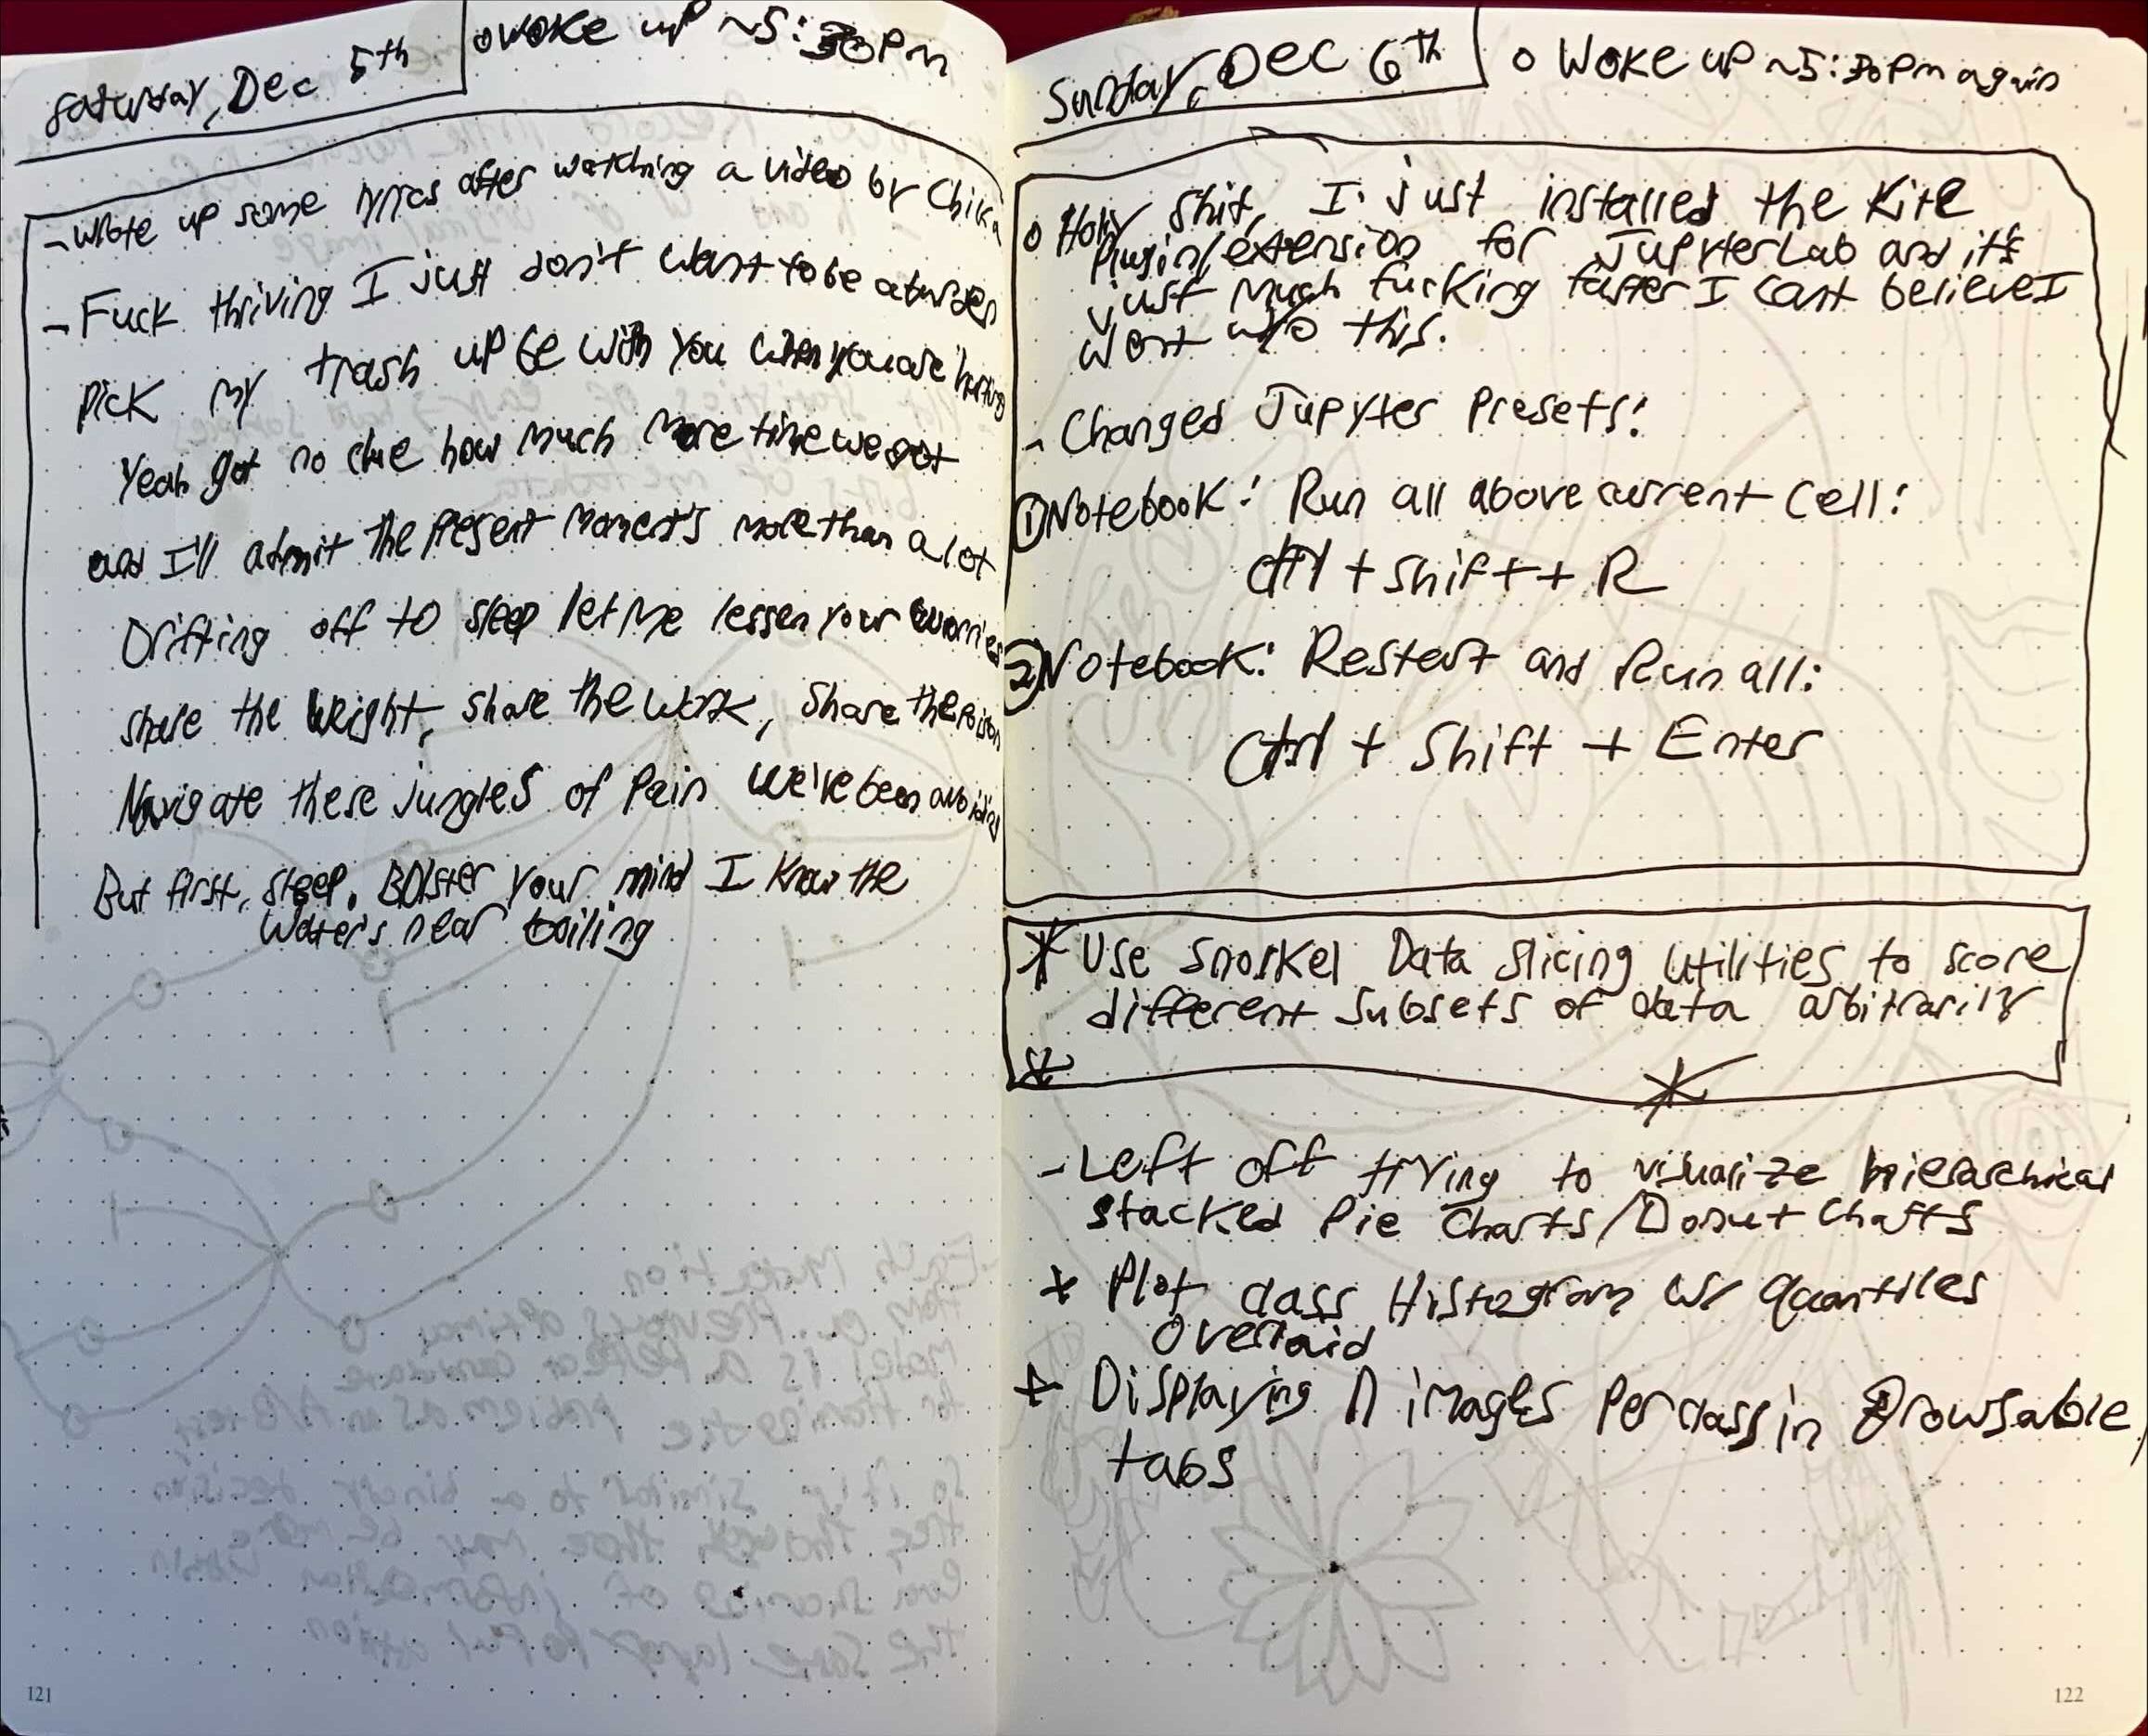 Saturday, Dec 5th
o Woke up ~5:30pm
- Wrote up some lyrics after watching a video by Chika
- Fuck thriving I just don't want to be a burden
Pick my trash up be with you when you are hurting
Yeah got no clue how much more time we got
and I'll admit the present moment's more than a lot
Drifting off to sleep let me lessen your worries
share the weight, share the work, share the poison
Navigate these jungles of pain we've been avoiding
But first, sleep. Bolster your mind I know the
water's near boiling
121
Sunday, Dec 6th
o Woke up ~5:30pm again
o Holy shit, I just installed the Kite
Plugin/extension for JupyterLab and it's
just much fucking faster I cant believe I
went w/o this.
- Changed Jupyter Presets!
① Notebook: Run all above current cell:
ctrl + shift + R
② Notebook: Restart and Run all:
Ctrl + Shift + Enter
* Use Snorkel Data Slicing utilities to score
different subsets of data arbitrarily
- Left off trying to visualize hierarchical
stacked Pie Charts/Donut Charts
* Plot class Histogram w/ quantiles
overlaid
* Displaying n images per class in Browsable
tabs
122